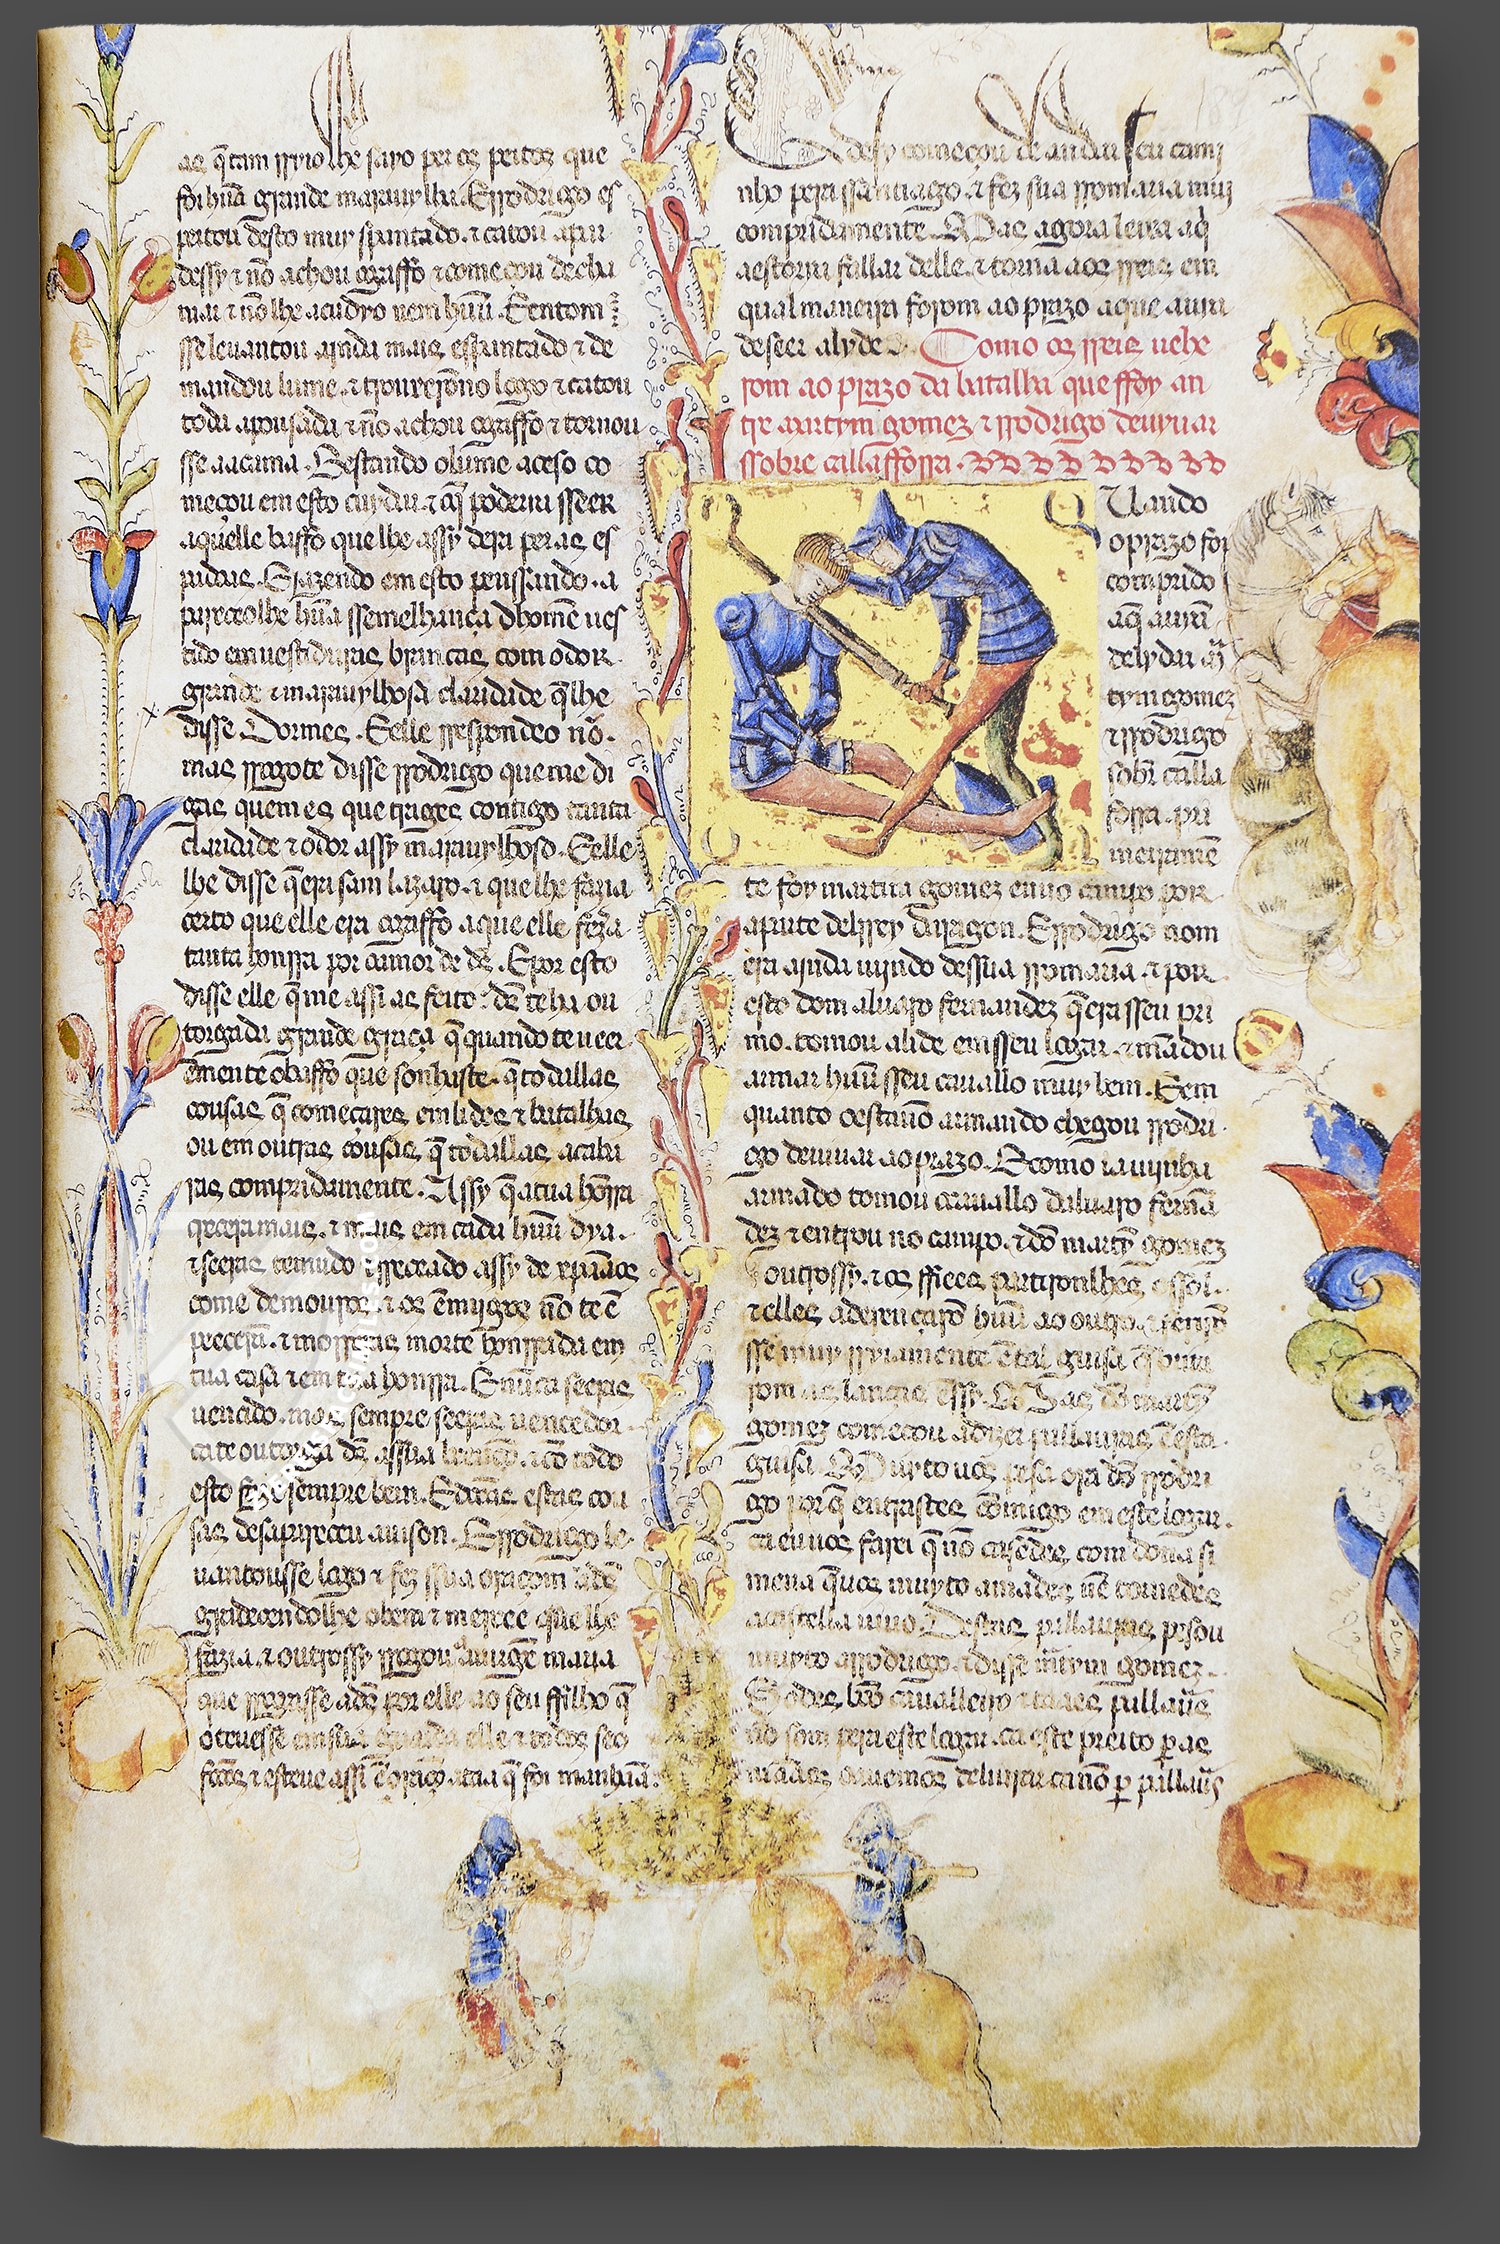 as q̃ tam rrijo lhe sayo per os peitos que
foi hũa grande marauylha. E rrodrigo es
pertou desto muy spantado. ⁊ catou apar
dessy ⁊ nõ achou o gaffo ⁊ começou de cha
mar ⁊ nõ lhe acudyo nem hũu. E entom
sse leuantou ajnda mais espantado ⁊ de
mandou lume. ⁊ trouuerõno logo ⁊ catou
toda apousada ⁊ nõ achou o gaffo ⁊ tornou
sse aacama. E estando olume aceso co
meçou em esto cuydar. ⁊ q̃ poderia sseer
aquelle baffo que lhe assy dera per as es
padas. E jazendo em esto penssando. a
pareceolhe hũa ssemelhança dhomẽ ues
tido em uestiduras brancas, com odor
grande ⁊ marauylhosa claridade q̃ lhe
disse Dormes. E elle rrespondeo nõ.
mas rrogote disse rrodrigo que me di
gas quem es, que trages contigo tanta
claridade ⁊ odor assy marauylhoso. E elle
lhe disse q̃ era sam lazaro. ⁊ que lhe fazia
certo que elle era o gaffo a que elle fezera
tanta honrra por amor de ds̃. E por esto
disse elle q̃ me assi as feito: ds̃ te ha ou
torgada grande graça q̃ quando te ueer
ẽmente obaffo que sonhaste. q̃ todallas
cousas q̃ começares, em lides ⁊ batalhas,
ou em outras cousas, q̃ todallas acaba
ras compridamente. Assy q̃ atua hõrra
creçera mais. ⁊ mais em cada hũu dya.
⁊ seeras temudo ⁊ rreceado assy de xp̃ãaos
come demouros. ⁊ os ẽmijgos nõ te ẽ
preceram. ⁊ morreras morte honrrada em
tua casa ⁊ em tua honrra. E nũca seeras
uencido. mas sempre seeras uencedor
ca te outorga ds̃ assua beençõ. ⁊ cõ todo
esto faze sempre bem. E dictas estas cou
sas desapareceu auison. E rrodrigo le
uantousse logo ⁊ fez ssua oraçom ads̃
gradecendolhe obem ⁊ merçee que lhe
fazia. ⁊ outrossy rrogou auirgẽ maria
que rrogasse ads̃ por elle ao seu ffilho q̃
o teuesse em sua guarda elle ⁊ todos seos
feitos ⁊ esteue assi ẽ oraçõ ataa q̃ foi manhãa.
E desy começou de andar seu cami
nho pera ssantiago. ⁊ fez sua rromaria mui
compridamente. Mas agora leixa aq̃
aestoria fallar delle. ⁊ torna aos rreis em
qual maneira forom ao prazo aque auia
deseer alyde. Como os rreis uehe
rom ao prazo da batalha que ffoy an
tre martym gomez ⁊ rrodrigo deuyuar
ssobre callafforra.
Quando
oprazo foy
comprido
aq̃ auiã
delydar mr̃
tym gomez
⁊ rrodrigo
sobr̃ calla
forra. pri
meiramẽ
te foy martim gomez en no campo por
aparte delrrey daragon. E rrodrigo nom
era ajnda uijndo dessua rromaria. ⁊ por
esto dom aluaro fernandez q̃ era sseu pri
mo. tomou alide em sseu logar. ⁊ mãdou
armar hũu sseu cauallo muy bem. E em
quanto oestauõ armando chegou rrodri
go deuiuar ao prazo. E como ia uijnha
armado tomou ocauallo daluaro fernã
dez ⁊ entrou no campo. ⁊ dõ martỹ gomez
outrossy. ⁊ os ffiees partironlhes ossol.
⁊ elles adereçarõ hũu ao outro. ⁊ ferirõ
sse muy rrijamente ẽ tal guisa q̃ brita
rom as lanças ẽ ssy. Mas dõ martỹ
gomez começou adizer pallauras ẽ esta
guisa. Muyto uos pesa ora dõ rrodri
go por q̃ entrastes comigo em este logar.
ca eu uos farei q̃ nõ casedes com dona xi
mena q̃ uos muyto amades, nẽ tornedes
acastella uiuo. Destas pallauras pesou
muyto arrodrigo. ⁊ disse amartym gomez.
Sodes bõo caualleiro ⁊ taaes pallauras
nõ som pera este logar. ca este preito p as
mãaos auemos delidar ca nõ p pallauras